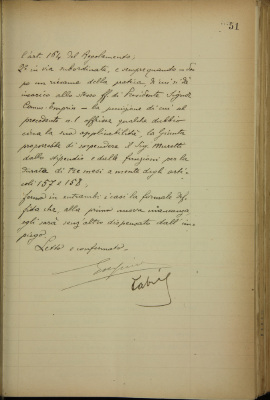 51
l'art. 164 del Regolamento;
2° in via subordinata, e sempre quando do-
po un riesame della pratica, di cui si dà
incarico allo stesso ff. di Presidente Signor
la punizione di cui al
precedente
ritenga la sua applicabilità, la Giunta
propone di sospendere il Sig. Moretti
dallo stipendio e dalle funzioni per la
durata di tre mesi a mente degli arti-
coli 157 e 158;
ferma in entrambi i casi la formale dif-
fida che, alla prima nuova mancanza
egli sarà senz'altro dispensato dall'im-
piego.
Letto e confermato